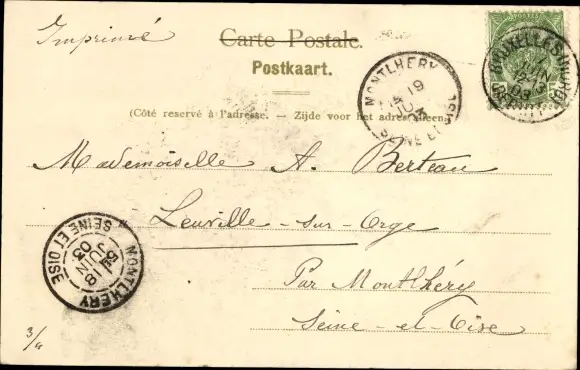 Imprimé
Carte Postale.
Postkaart.
(Côté reservé à l'adresse. — Zijde voor het adres alleen.)
MONTLHERY
19
JUIN
03
SEINE ET OISE
BRUXELLES
JUIN
03
Mademoiselle A. Berteau
Leuville-sur-Orge
Par Montlhéry
Seine-et-Oise
MONTLHERY
18
JUIN
03
SEINE ET OISE
3/4